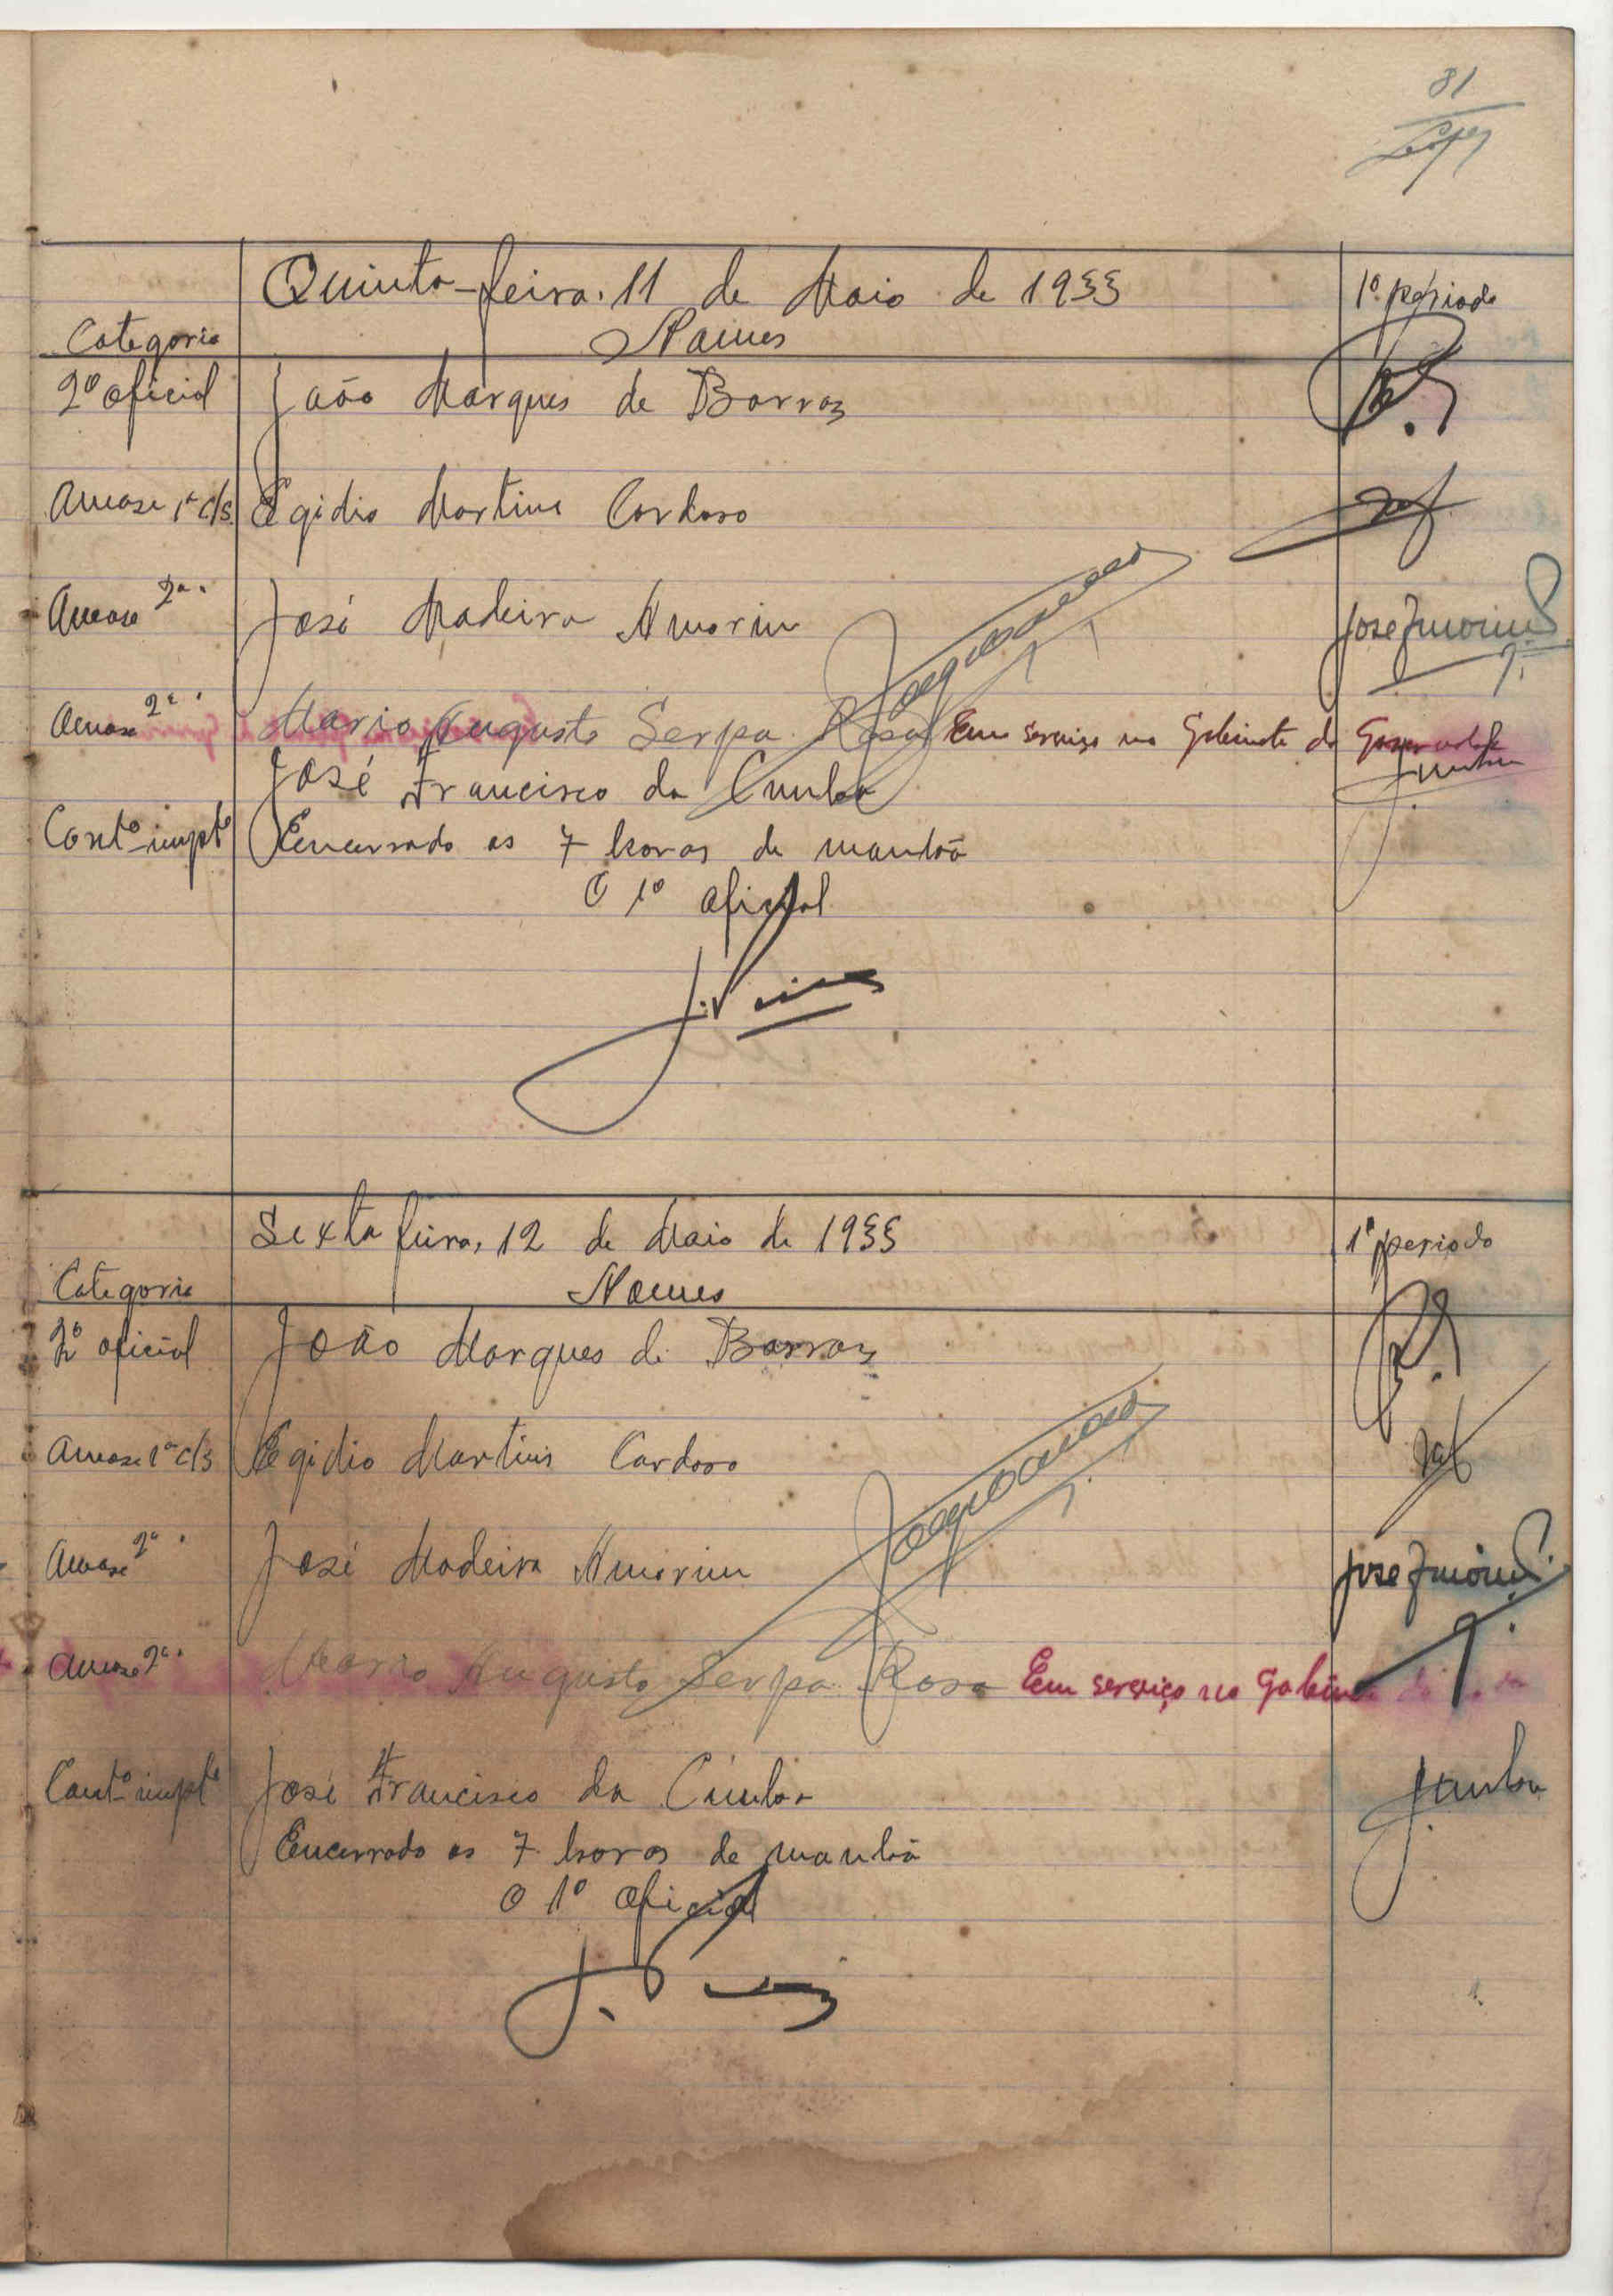 81
Quinta-feira, 11 de Maio de 1933
1º período
Categoria
Nomes
2º oficial João Marques de Barros
Amase 1ª c/s Egidio Martins Cardoso
Amase 2ª " José Madeira Amorim José Amorim
Amase 2ª " Mario Augusto Serpa Rosa Em serviço no Gabinete do
José Francisco da Cunha
Contº impte Encerrado as 7 horas de manhã
O 1º oficial
Sexta feira, 12 de Maio de 1933
1º periodo
Categoria
Nomes
2º oficial João Marques de Barros
Amase 1ª c/s Egidio Martins Cardoso
Amase 2ª " José Madeira Amorim José Amorim
Amase 2ª " Mario Augusto Serpa Rosa Em serviço no Gabine
Contº impte José Francisco da Cunha
Encerrado as 7 horas de manhã
O 1º oficial